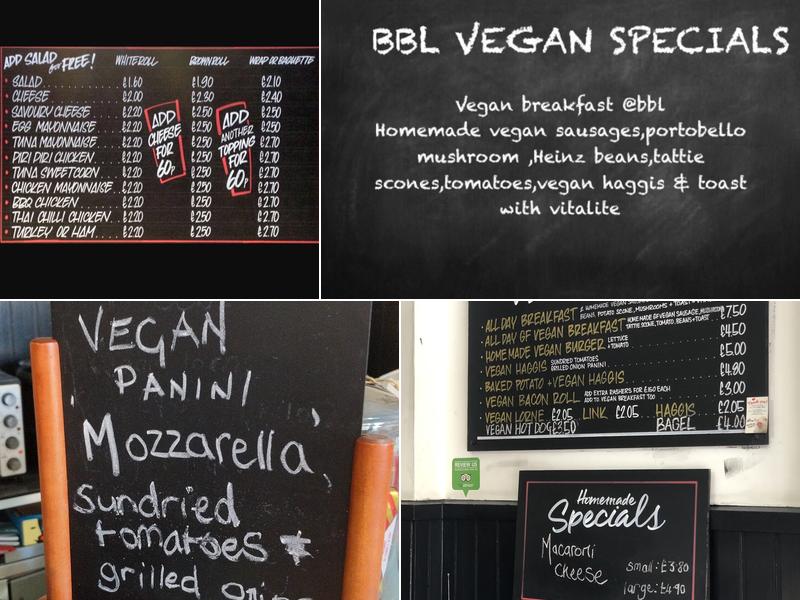 ADD SALAD for FREE! WHITE ROLL BROWN ROLL WRAP OR BAGUETTE
SALAD £1.60 £1.90 £2.10
CHEESE £2.00 £2.30 £2.40
SAVOURY CHEESE £2.20 £2.50 £2.50
EGG MAYONNAISE £2.20 £2.50 £2.50
TUNA MAYONNAISE £2.20 £2.50 £2.70
PIRI PIRI CHICKEN £2.20 £2.50 £2.70
TUNA SWEETCORN £2.20 £2.50 £2.70
CHICKEN MAYONNAISE £2.20 £2.50 £2.70
BBQ CHICKEN £2.20 £2.50 £2.70
THAI CHILLI CHICKEN £2.20 £2.50 £2.70
TURKEY OR HAM £2.20 £2.50 £2.70
ADD
CHEESE
FOR
60p
ADD
ANOTHER
TOPPING
FOR
60p
BBL VEGAN SPECIALS
Vegan breakfast @bbl
Homemade vegan sausages,portobello
mushroom ,Heinz beans,tattie
scones,tomatoes,vegan haggis & toast
with vitalite
VEGAN
PANINI
Mozzarella,
Sundried
tomatoes
grilled
ALL DAY BREAKFAST 2 HOMEMADE VEGAN
BEANS, POTATO SCONE, MUSHROOMS + TOAST £7.50
ALL DAY GF VEGAN BREAKFAST HOME MADE GF VEGAN SAUSAGE,
TATTIE SCONE, TOMATO, BEANS + TOAST £4.50
HOME MADE VEGAN BURGER LETTUCE
+ TOMATO £5.00
VEGAN HAGGIS SUNDRIED TOMATOES
GRILLED ONION PANINI £4.80
BAKED POTATO + VEGAN HAGGIS £3.00
VEGAN BACON ROLL ADD EXTRA RASHERS FOR £1.50 EACH
ADD TO VEGAN BREAKFAST TOO
VEGAN LORNE £2.05 LINK £2.05 HAGGIS £2.05
VEGAN HOT DOG £3.50 BAGEL £4.00
REVIEW US
Homemade
Specials
Macaroni
Cheese
small: £3.80
large: £4.90